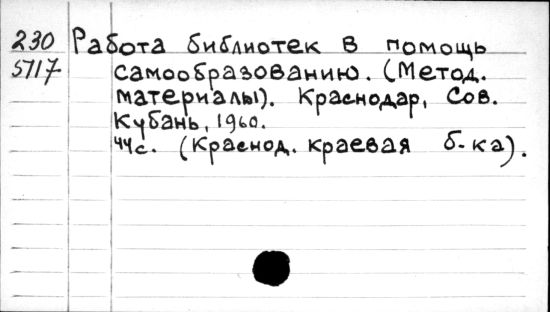 230 Работа библиотек в помощь
5717 самообразованию. (Метод.
материалы). Краснодар, Сов.
Кубань, 1960.
44с. (Краснод. краевая б-ка).